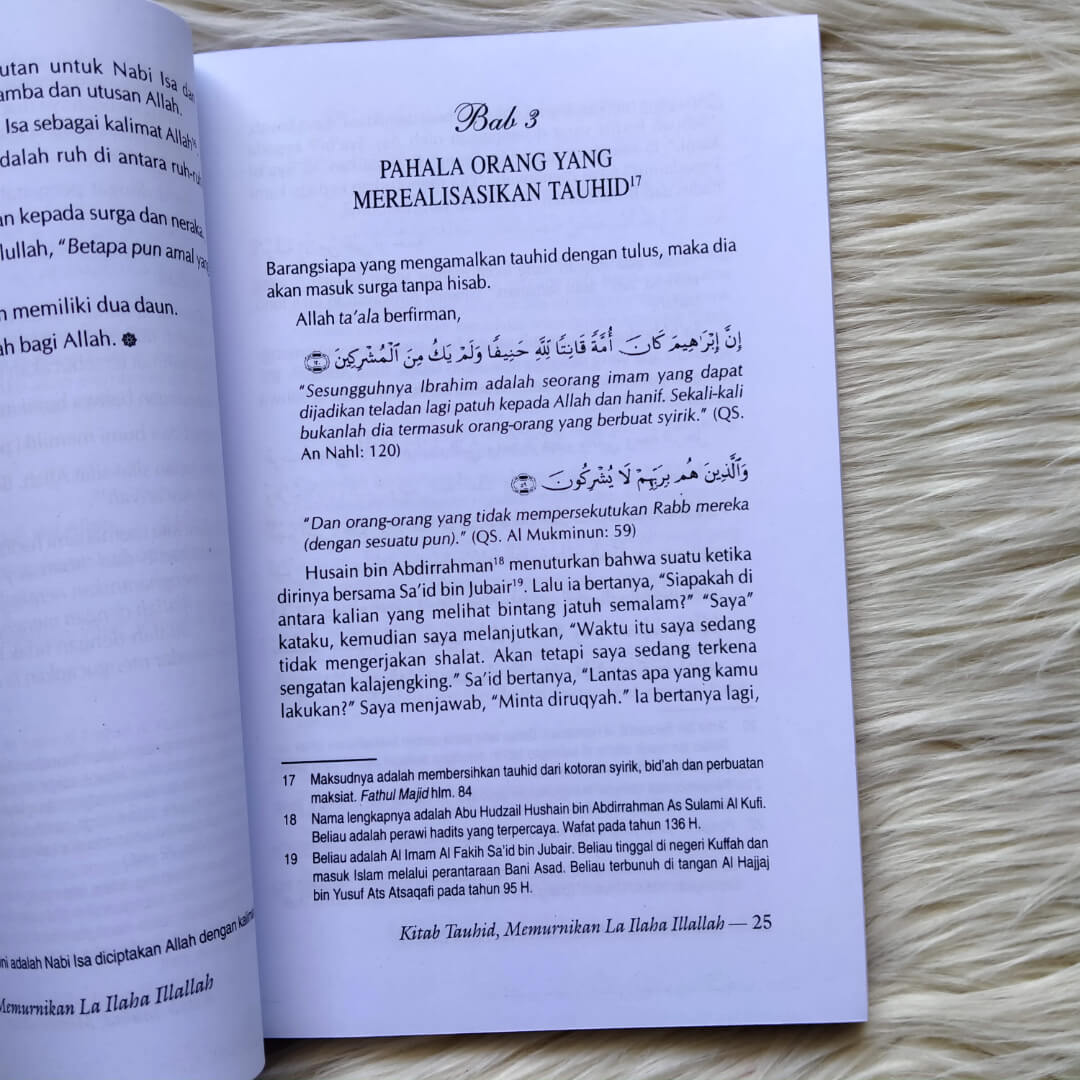 utan untuk Nabi Isa dan
amba dan utusan Allah.
Isa sebagai kalimat Allah
dalah ruh di antara ruh-ruh
an kepada surga dan neraka.
lullah, “Betapa pun amal yang
n memiliki dua daun.
ah bagi Allah.
ini adalah Nabi Isa diciptakan Allah dengan
Memurnikan La Ilaha Illallah
Bab 3
PAHALA ORANG YANG
MEREALISASIKAN TAUHID17
Barangsiapa yang mengamalkan tauhid dengan tulus, maka dia
akan masuk surga tanpa hisab.
Allah ta’ala berfirman,
إِنَّ إِبْرَٰهِيمَ كَانَ أُمَّةً قَانِتًا لِلَّهِ حَنِيفًا وَلَمْ يَكُ مِنَ ٱلْمُشْرِكِينَ ١٢٠
“Sesungguhnya Ibrahim adalah seorang imam yang dapat
dijadikan teladan lagi patuh kepada Allah dan hanif. Sekali-kali
bukanlah dia termasuk orang-orang yang berbuat syirik.” (QS.
An Nahl: 120)
وَٱلَّذِينَ هُم بِرَبِّهِمْ لَا يُشْرِكُونَ ٥٩
“Dan orang-orang yang tidak mempersekutukan Rabb mereka
(dengan sesuatu pun).” (QS. Al Mukminun: 59)
Husain bin Abdirrahman18 menuturkan bahwa suatu ketika
dirinya bersama Sa’id bin Jubair19. Lalu ia bertanya, “Siapakah di
antara kalian yang melihat bintang jatuh semalam?” “Saya”
kataku, kemudian saya melanjutkan, “Waktu itu saya sedang
tidak mengerjakan shalat. Akan tetapi saya sedang terkena
sengatan kalajengking.” Sa’id bertanya, “Lantas apa yang kamu
lakukan?” Saya menjawab, “Minta diruqyah.” Ia bertanya lagi,
17 Maksudnya adalah membersihkan tauhid dari kotoran syirik, bid’ah dan perbuatan
maksiat. Fathul Majid hlm. 84
18 Nama lengkapnya adalah Abu Hudzail Hushain bin Abdirrahman As Sulami Al Kufi.
Beliau adalah perawi hadits yang terpercaya. Wafat pada tahun 136 H.
19 Beliau adalah Al Imam Al Fakih Sa’id bin Jubair. Beliau tinggal di negeri Kuffah dan
masuk Islam melalui perantaraan Bani Asad. Beliau terbunuh di tangan Al Hajjaj
bin Yusuf Ats Atsaqafi pada tahun 95 H.
Kitab Tauhid, Memurnikan La Ilaha Illallah — 25